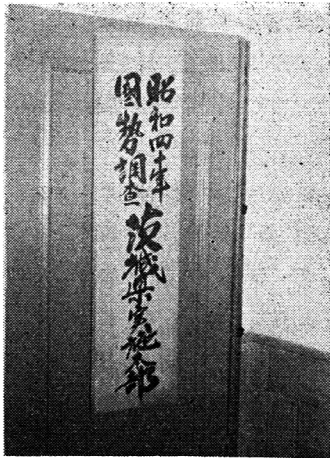 昭和四十年
國勢調査
茨城県実施本部